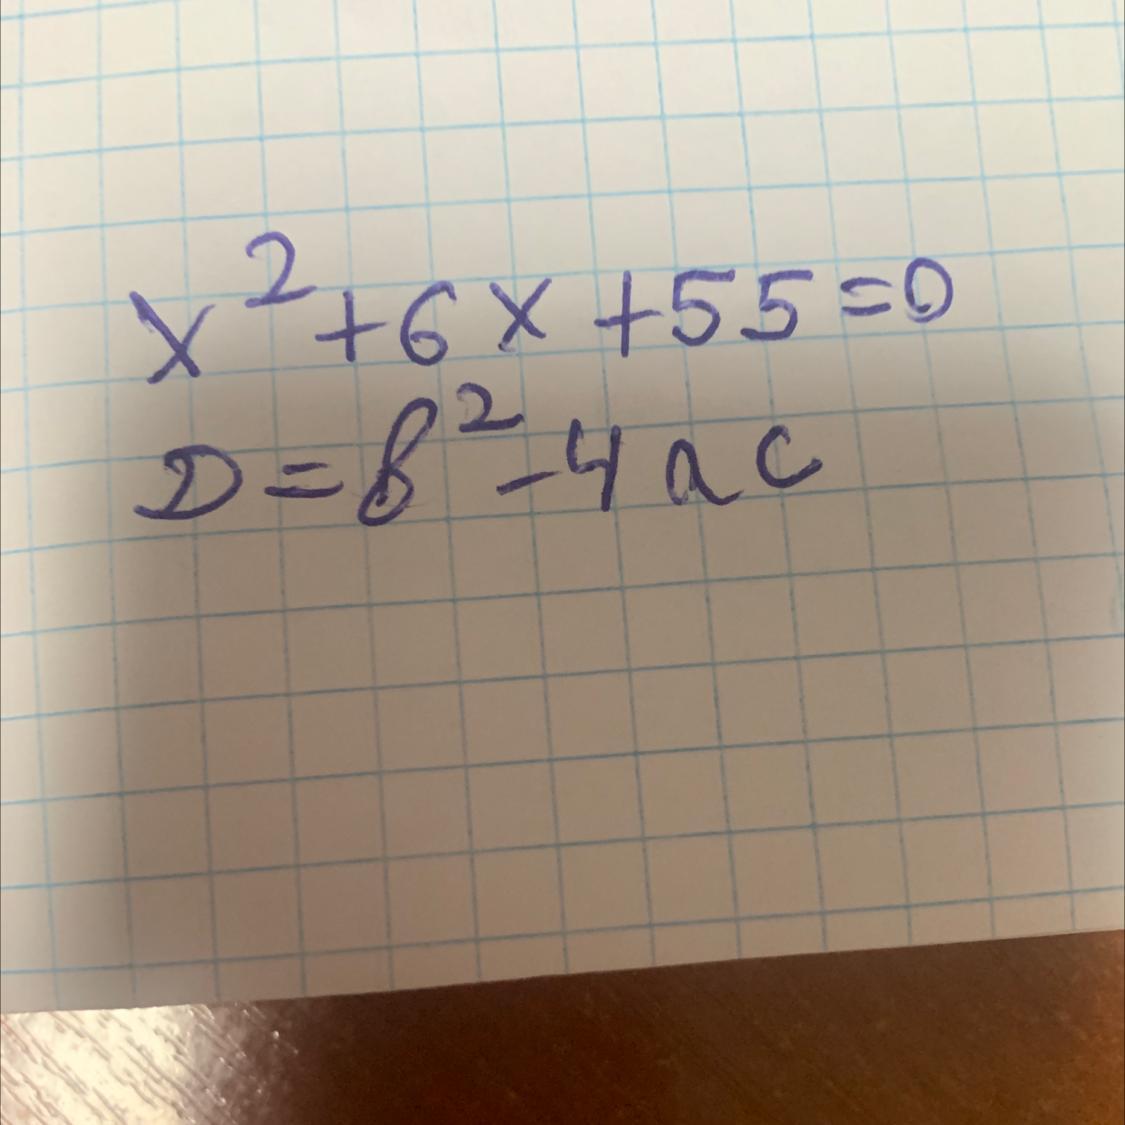 x²+6x+55=0
D=b²-4ac